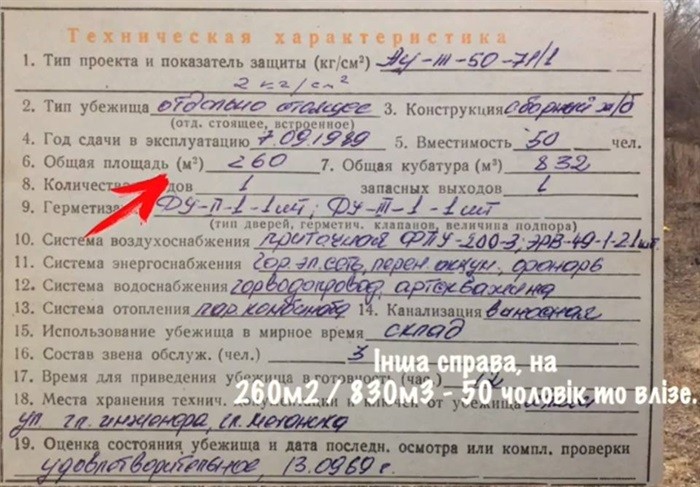 Техническая характеристика
1. Тип проекта и показатель защиты (кг/см²) Ау-III-50-71/1
2 кг/см²
2. Тип убежища отдельно стоящее 3. Конструкция сборный ж/б
(отд. стоящее, встроенное)
4. Год сдачи в эксплуатацию 7.09.1989 5. Вместимость 50 чел.
6. Общая площадь (м²) 260 7. Общая кубатура (м³) 832
8. Количество входов 1 запасных выходов 1
9. Герметиза ДУ-II-1-1шт; ДУ-III-1-1шт
(тип дверей, герметич. клапанов, величина подпора)
10. Система воздухоснабжения приточная ФПУ-200-3, ЭРВ-49-1-21шт.
11. Система энергоснабжения гор.эл.сеть, перен.аккум., фонарь
12. Система водоснабжения горводопровод, артскважина
13. Система отопления пар. комбината 14. Канализация выносная
15. Использование убежища в мирное время склад
16. Состав звена обслуж. (чел.) 3
Інша справа, на
17. Время для приведения убежища в готовность (час.)
260м2 / 830м3 - 50 чоловік то влізе.
18. Места хранения технич. документации и ключей от убежища
ул. гл. инженера, гл. механика
19. Оценка состояния убежища и дата последн. осмотра или компл. проверки
удовлетворительное, 13.0989 г.